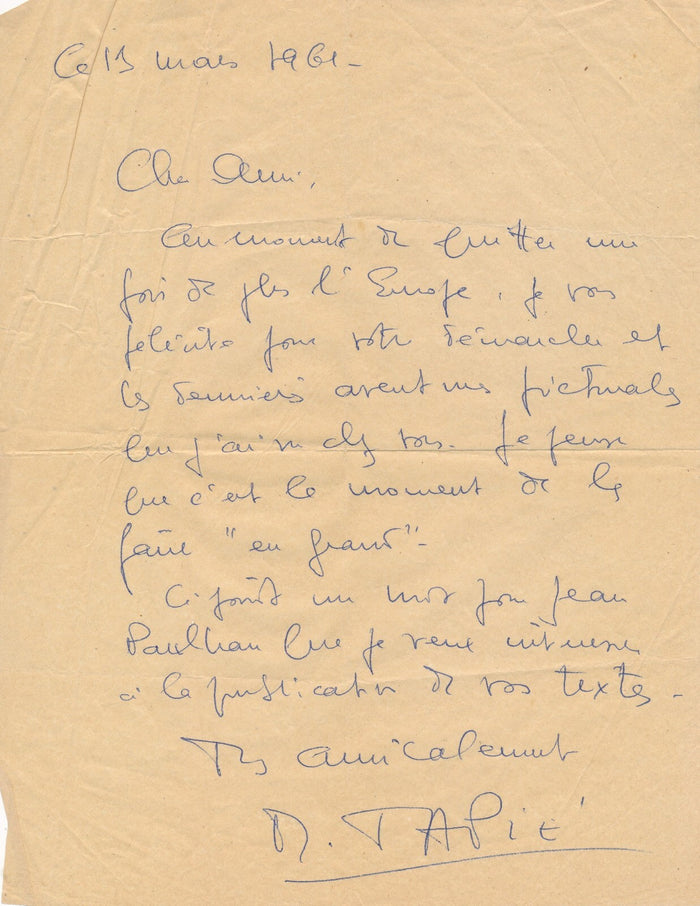 Ce 13 mars 1961 -
Cher Ami,
Au moment de quitter une
fois de plus l'Europe, je vous
félicite pour votre démarche et
les derniers aventures picturales
que j'ai vu chez vous. Je pense
que c'est le moment de les
faire "en grand" -
Ci joint un mot pour Jean
Paulhan que je veux intéresser
à la publication de vos textes -
Très amicalement
M. TAPIÉ